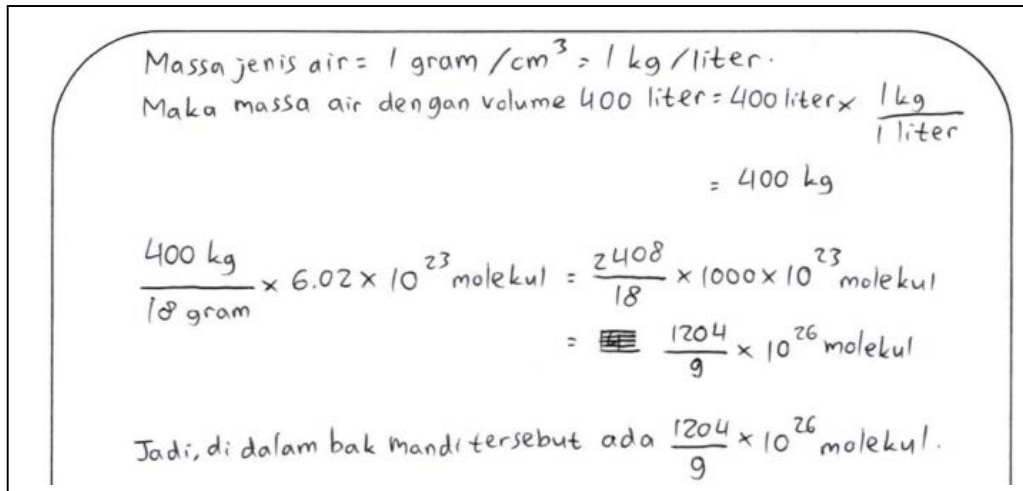 Massa jenis air = 1 gram/cm³ = 1 kg/liter.
Maka massa air dengan volume 400 liter = 400 liter × 1 kg / 1 liter
= 400 kg
400 kg / 18 gram × 6.02 × 10²³ molekul = 2408 / 18 × 1000 × 10²³ molekul
= 1204 / 9 × 10²⁶ molekul
Jadi, di dalam bak mandi tersebut ada 1204 / 9 × 10²⁶ molekul.